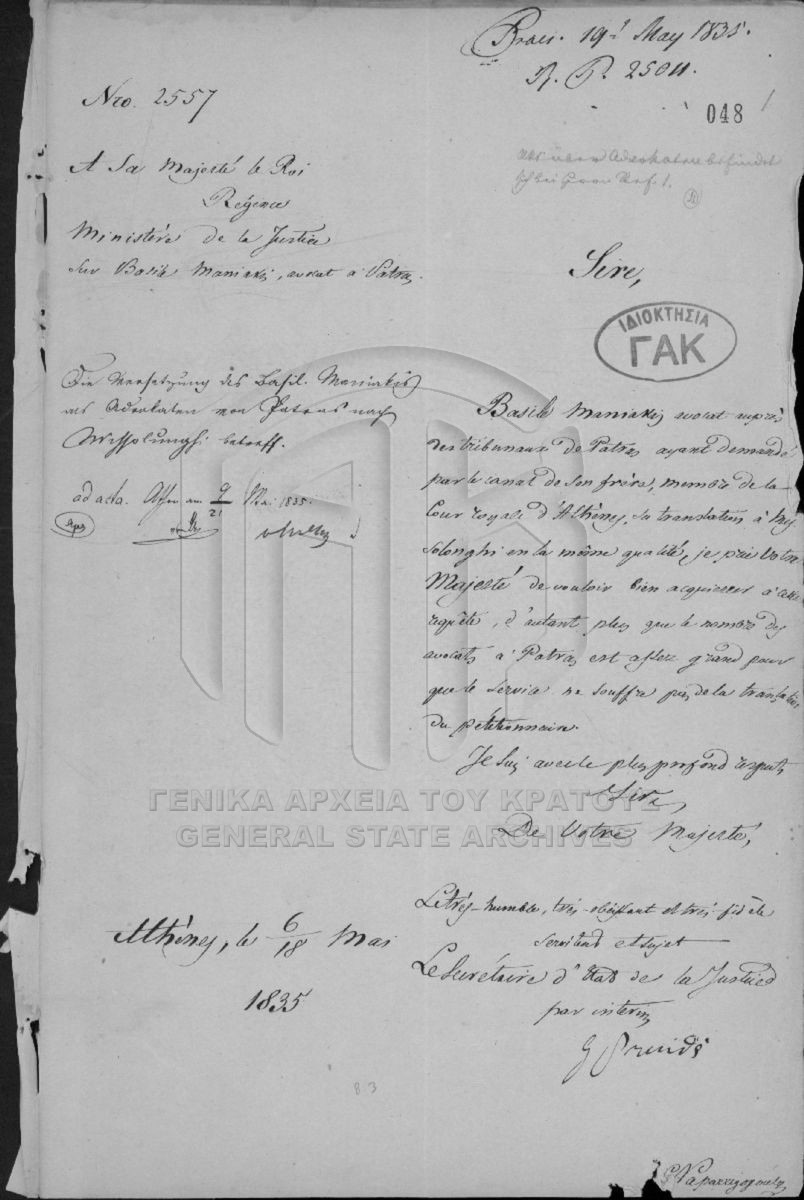 Praes. 19t May 1835.
R. P. 2504.
Nro. 2557
048
A Sa Majesté le Roi
Régence
Ministère de la Justice
Sur Basile Maniakis, avocat à Patras.
Akt über Advokaten befindet
sich bei Herrn Ref. 1.
Sire,
ΙΔΙΟΚΤΗΣΙΑ
ΓΑΚ
Die Versetzung des Basil. Maniakis
als Advokaten von Patras nach
Missolunghi betreff.
ad acta. Athen am 9/21 Mai 1835.
Basile Maniakis avocat auprès
des tribunaux de Patras ayant demandé
par le canal de son frère, membre de la
Cour royale d'Athènes, sa translation à Mis
solonghi en la même qualité, je prie Votre
Majesté de vouloir bien acquiescer à cette
requête, d'autant plus que le nombre des
avocats à Patras est assez grand pour
que le service ne souffre pas de la translation
du pétitionnaire.
Je suis avec le plus profond respect,
Sire,
De Votre Majesté,
Le très-humble, très-obéissant et très-fidèle
serviteur et sujet
Le Secrétaire d'Etat de la Justice
par interim
G Praidis
Athènes, le 6/18 Mai
1835
ΓΕΝΙΚΑ ΑΡΧΕΙΑ ΤΟΥ ΚΡΑΤΟΥΣ
GENERAL STATE ARCHIVES
8.3